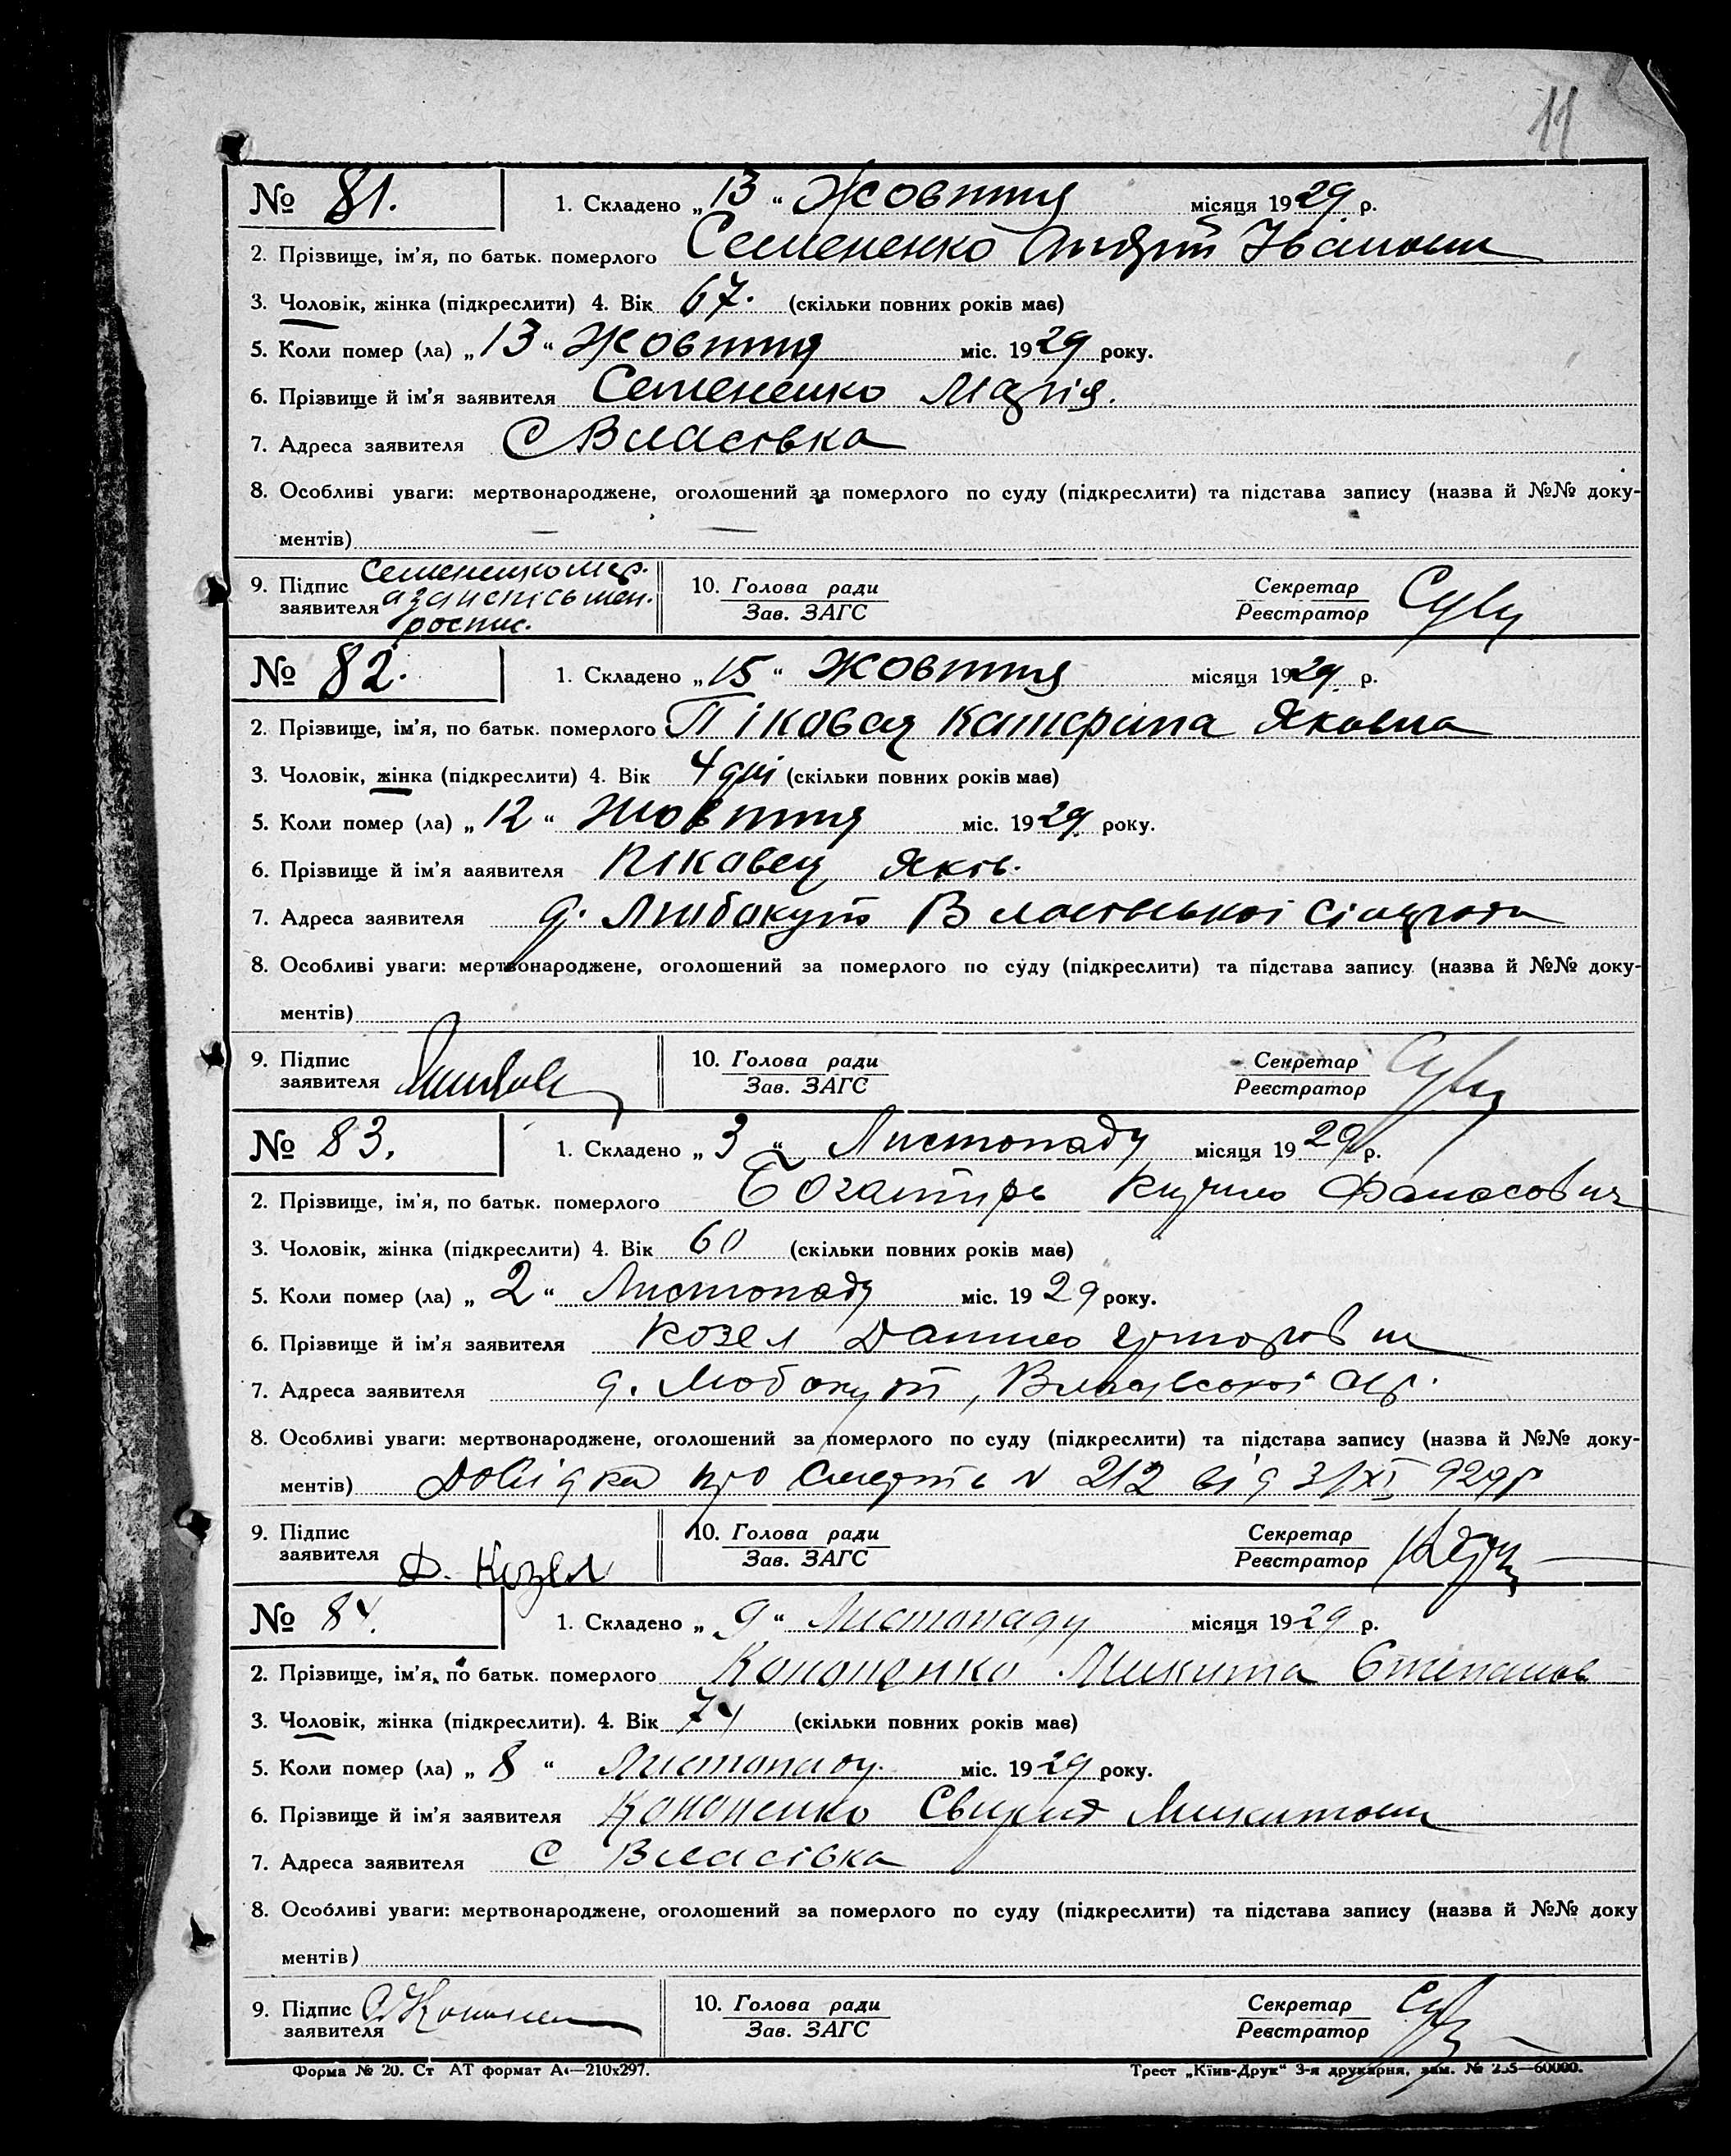 11
№ 81. 1. Складено „13“ Жовтня місяця 1929 р.
2. Прізвище, ім’я, по батьк. померлого Семененко Андрій Іванович
3. Чоловік, жінка (підкреслити) 4. Вік 67. (скільки повних років має)
5. Коли помер (ла) „13“ Жовтня міс. 1929 року.
6. Прізвище й ім’я заявителя Семененко Марія.
7. Адреса заявителя С Власівка
8. Особливі уваги: мертвонароджене, оголошений за померлого по суду (підкреслити) та підстава запису (назва й №№ доку-
ментів)
9. Підпис заявителя Семененко Мар.
розпис.
10. Голова ради Секретар
Зав. ЗАГС Реєстратор
№ 82. 1. Складено „15“ Жовтня місяця 1929 р.
2. Прізвище, ім’я, по батьк. померлого Піковая Катерина Яковна
3. Чоловік, жінка (підкреслити) 4. Вік 4 дні (скільки повних років має)
5. Коли помер (ла) „12“ Жовтня міс. 1929 року.
6. Прізвище й ім’я заявителя Яків.
7. Адреса заявителя д. Любакут Власівської сільради
8. Особливі уваги: мертвонароджене, оголошений за померлого по суду (підкреслити) та підстава запису (назва й №№ доку-
ментів)
9. Підпис заявителя
10. Голова ради Секретар
Зав. ЗАГС Реєстратор
№ 83. 1. Складено „3“ Листопаду місяця 1929 р.
2. Прізвище, ім’я, по батьк. померлого Богатирь Кирило Фанасович
3. Чоловік, жінка (підкреслити) 4. Вік 60 (скільки повних років має)
5. Коли помер (ла) „2“ Листопаду міс. 1929 року.
6. Прізвище й ім’я заявителя Козел Данило Григорович
7. Адреса заявителя д. Любакут, Власівської с/р.
8. Особливі уваги: мертвонароджене, оголошений за померлого по суду (підкреслити) та підстава запису (назва й №№ доку-
ментів) Довідка про смерть № 212 від 3/XI 929 р
9. Підпис заявителя Д. Козел
10. Голова ради Секретар
Зав. ЗАГС Реєстратор
№ 84. 1. Складено „9“ Листопаду місяця 1929 р.
2. Прізвище, ім’я, по батьк. померлого Кононенко Микита Степанов
3. Чоловік, жінка (підкреслити). 4. Вік 74 (скільки повних років має)
5. Коли помер (ла) „8“ Листопаду міс. 1929 року.
6. Прізвище й ім’я заявителя Кононенко Свирид Микитович
7. Адреса заявителя С Власівка
8. Особливі уваги: мертвонароджене, оголошений за померлого по суду (підкреслити) та підстава запису (назва й №№ доку
ментів)
9. Підпис заявителя С Кононен
10. Голова ради Секретар
Зав. ЗАГС Реєстратор
Форма № 20. Ст АТ формат А4—210х297. Трест „Київ-Друк“ 3-я друкарня, зам. № 235—60000.